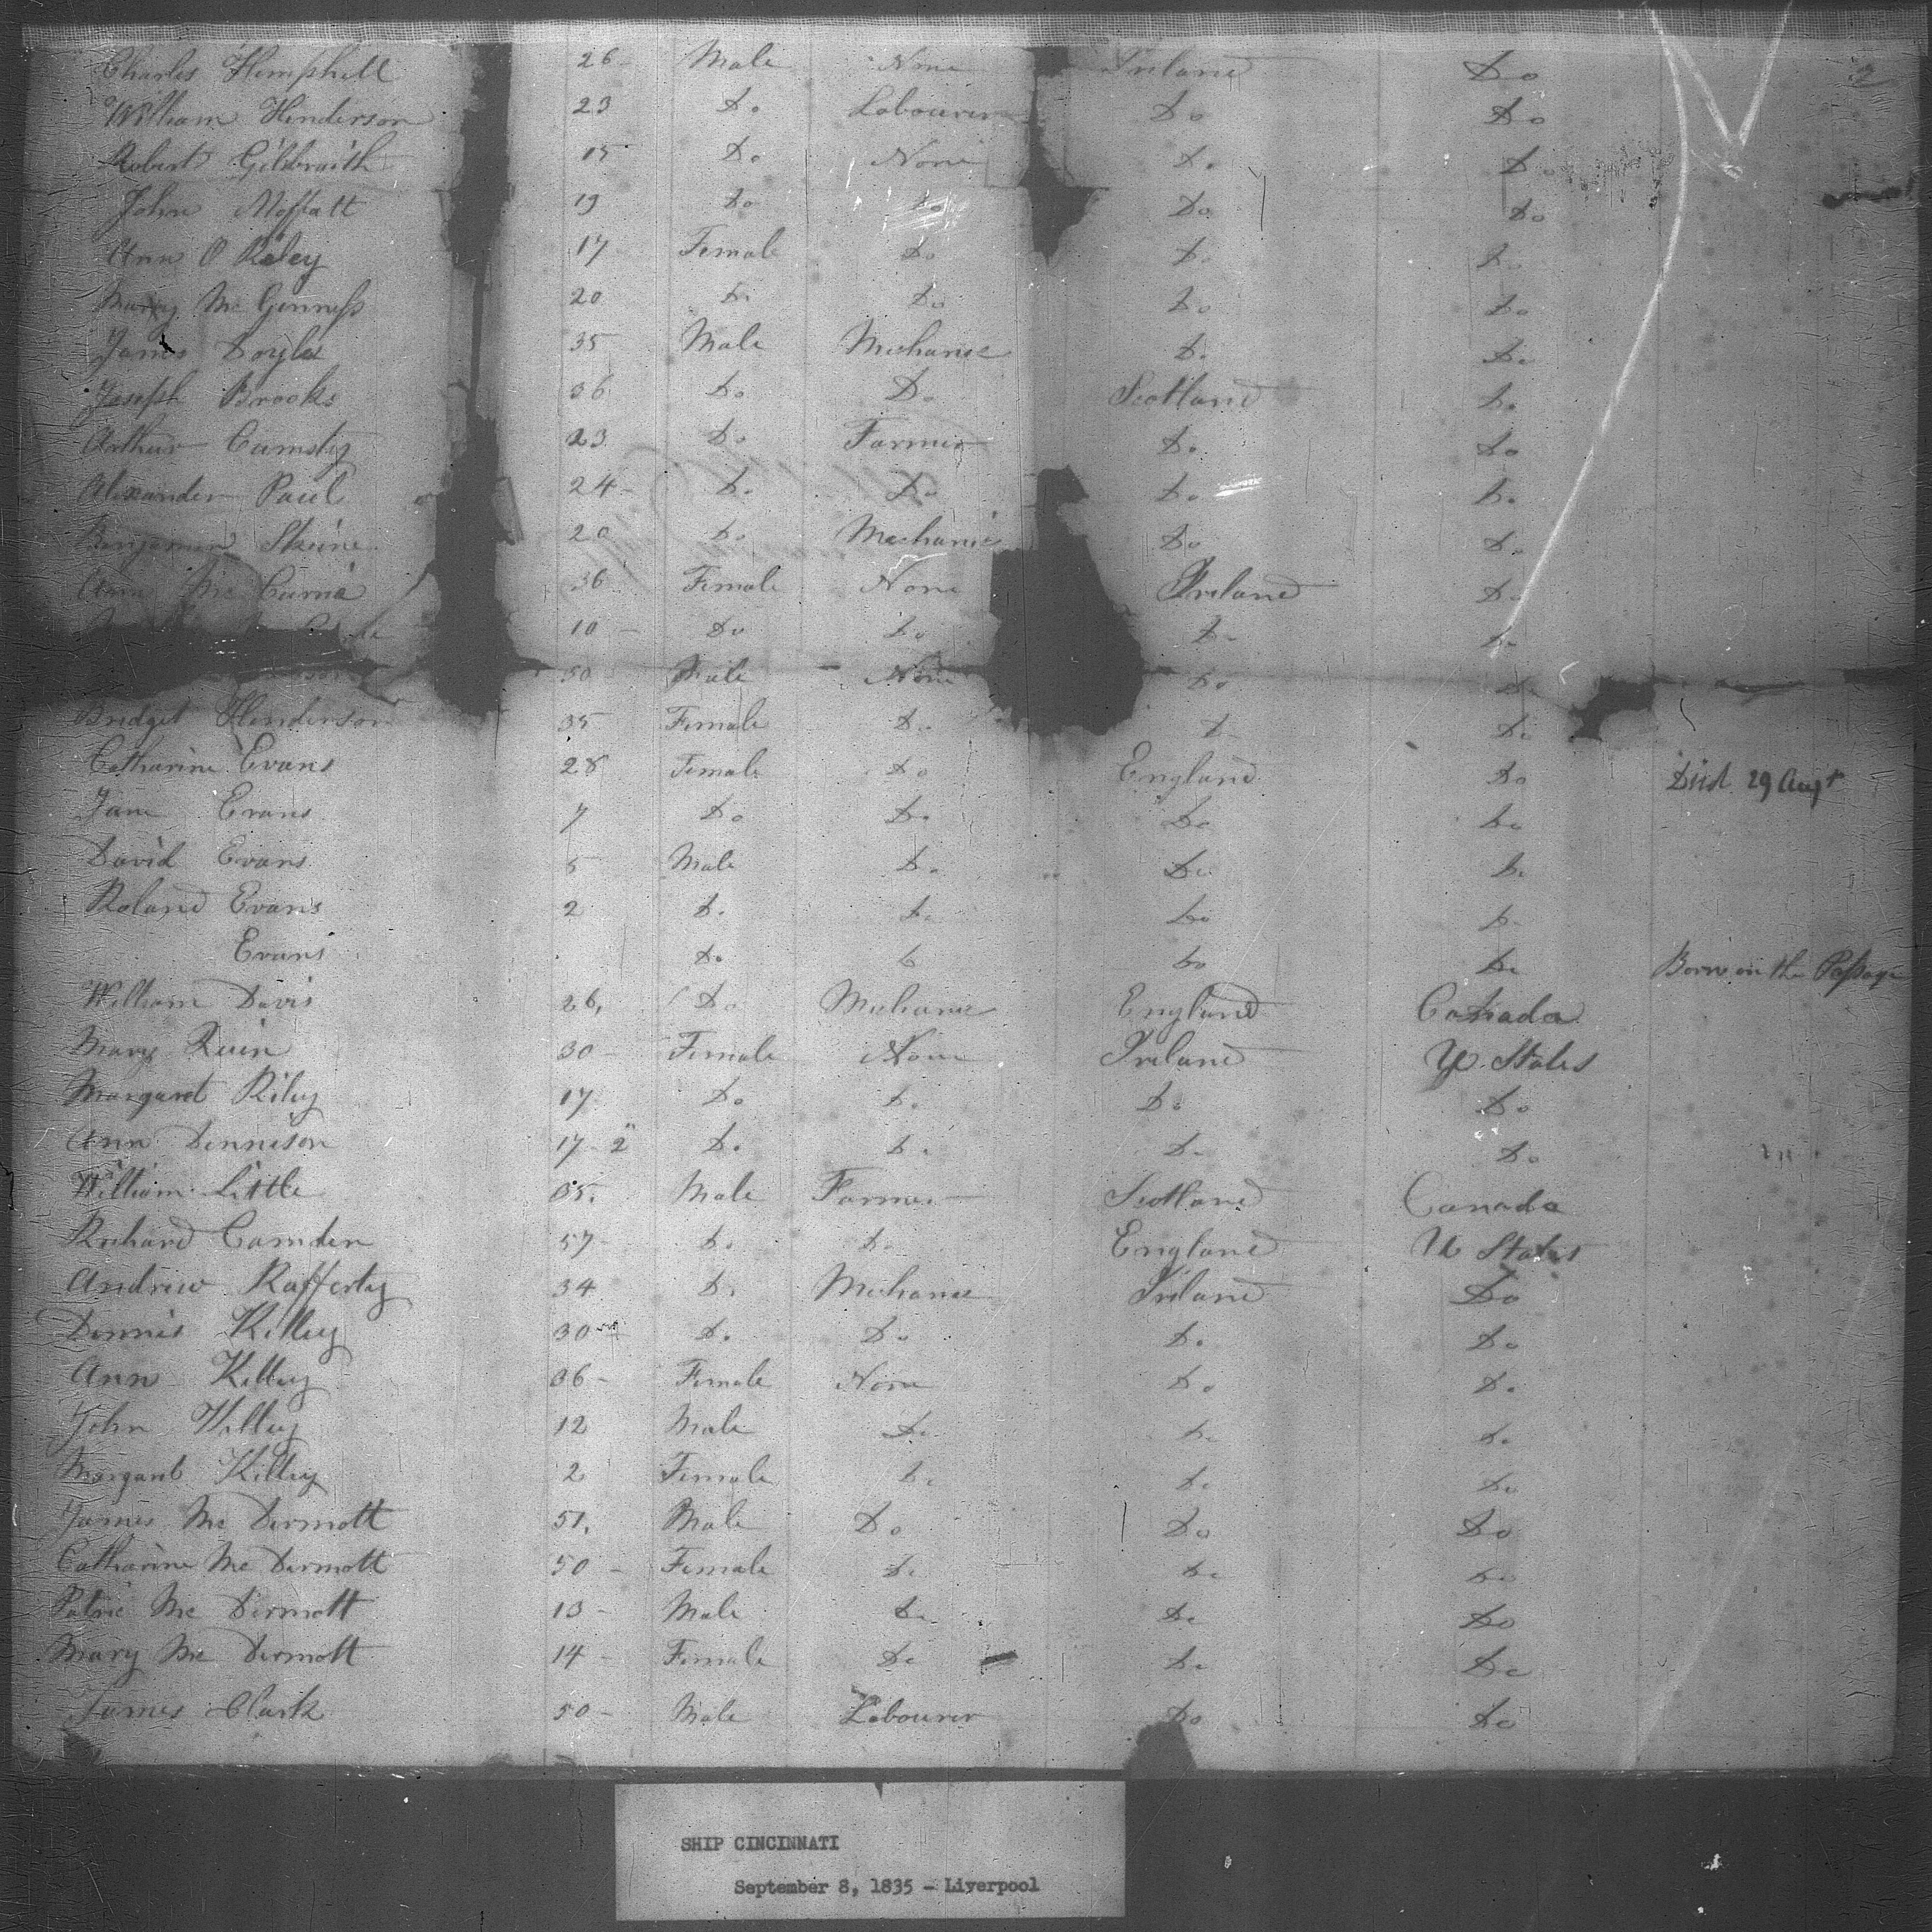 2
Charles Hemphill 26 Male None Ireland Do
William Henderson 23 Do Labourer Do Do
Robert Gilbraith 15 Do None Do Do
John Moffatt 19 Do Do Do Do
Ann O Reley 17 Female Do Do Do
Mary Mc Genness 20 Do Do Do Do
James Doyle 35 Male Mechanic Do Do
Joseph Brooks 36 Do Do Scotland Do
Arthur Cumsty 23 Do Farmer Do Do
Alexander Paul 24 Do Do Do Do
Benjamin Skeine 20 Do Mechanic Do Do
Ann Mc 36 Female None Ireland Do
10 Do Do Do Do
50 Male None Do Do
Bridget Henderson 35 Female Do Do Do
Catharine Evans 28 Female Do England Do Died 29 Augt
Jane Evans 7 Do Do Do Do
David Evans 5 Male Do Do Do
Roland Evans 2 Do Do Do Do
Evans Do Do Do Do Born on the Passage
William Davis 26 Do Mechanic England Canada
Mary Quin 30 Female None Ireland U. States
Margaret Riley 17 Do Do Do Do
Ann Dennison 17-2 Do Do Do Do
William Little 35 Male Farmer Scotland Canada
Richard Camden 57 Do Do England U States
Andrew Rafferty 34 Do Mechanic Ireland Do
Dennis Killey 30 Do Do Do Do
Ann Killey 36 Female None Do Do
John Killey 12 Male Do Do Do
Margaret Killey 2 Female Do Do Do
James Mc Dermott 51 Male Do Do Do
Catharine Mc Dermott 50 Female Do Do Do
Patric Mc Dermott 13 Male Do Do Do
Mary Mc Dermott 14 Female Do Do Do
James Clark 50 Male Labourer Do Do
SHIP CINCINNATI
September 8, 1835 - Liverpool